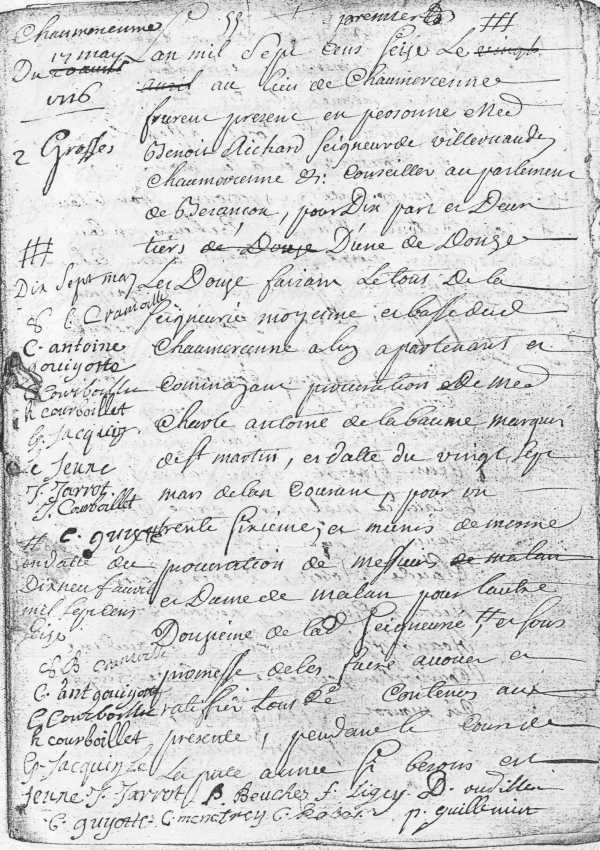 Chaumercenne
55
premier
Du 17 may
1716
2 Grosses
Lan mil Sept cens seise Le vingt
avril au lieu de Chaumercenne
furent present en personne Med
Benoit Richard Seigneur de villervaude
Chaumercenne &c. Conseiller au parlement
de Besançon, pour Dix part et Deux
tiers de Douze D'une de Douze
Les Douze faisant Le tout de la
Seigneurie moyenne et basse dud
Chaumercenne a luy apartenant et
comme ayant procuration de Med
Charle antoine de la baume marquis
de st martin, en datte du vingt sept
mars de lan Courant, pour un
trente sixieme, et munis de meme
procuration de messieurs de malan
et Dame de malan pour lautre
Douzieme de lad Seigneurie, et sous
promesse de les faire avouer et
ratiffier tous Contenus aux
presente, pendant le Cour de
La pnte année sy besoins est
Dix Sept may
C. antoine
gouyotte
C. Courboillet
h courboillet
G. Jacquin
Le Jeune
J. Jarrot
J. Courboillet
C. guyotte
en datte du
Dix neuf avril
mil sept cens
seise
C. ant gouyotte
C. Courboillet
h courboillet
G. Jacquin Le
Jeune J. Jarrot B. Beuchey f. Ligey D. oudille
C. guyotte C. menetrey C. p. guillemin